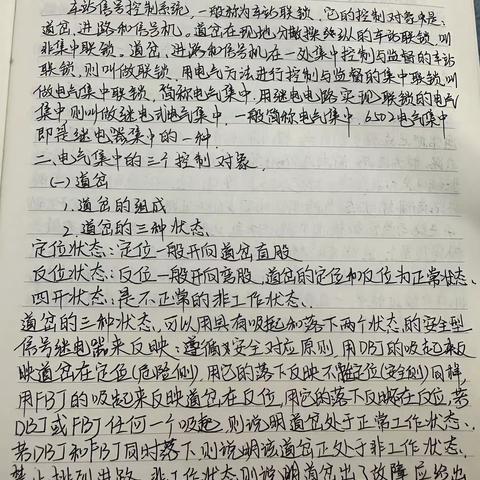 车站信号控制系统,一般称为车站联锁,它的控制对象是:
道岔,进路和信号机。道岔在现地分散操纵的车站联锁,叫
非集中联锁。道岔、进路和信号机在一处集中控制与监督的车站
联锁,则叫做联锁,用电气方法进行控制与监督的集中联锁,叫
做电气集中联锁,简称电气集中,用继电电路实现联锁的电气
集中,则叫做继电式电气集中,一般简称电气集中,6502电气集中
即是继电器集中的一种.
二.电气集中的三个控制对象.
(一)道岔
1.道岔的组成
2.道岔的三种状态
定位状态:定位一般开向道岔直股
反位状态:反位一般开向弯股,道岔的定位和反位为正常状态.
四开状态:是不正常的非工作状态.
道岔的三种状态,可以用具有吸起和落下两个状态的安全型
信号继电器来反映:遵循安全对应原则,用DBJ的吸起来反
映道岔在定位(危险侧),用它的落下反映不在定位(安全侧)同样,
用FBJ的吸起来反映道岔在反位,用它的落下反映在反位,若
DBJ或FBJ任何一个吸起,则说明道岔处于正常工作状态.
若DBJ和FBJ同时落下,则说明该道岔正处于非工作状态.
禁止排列进路,非工作状态则说明道岔出了故障,应给出